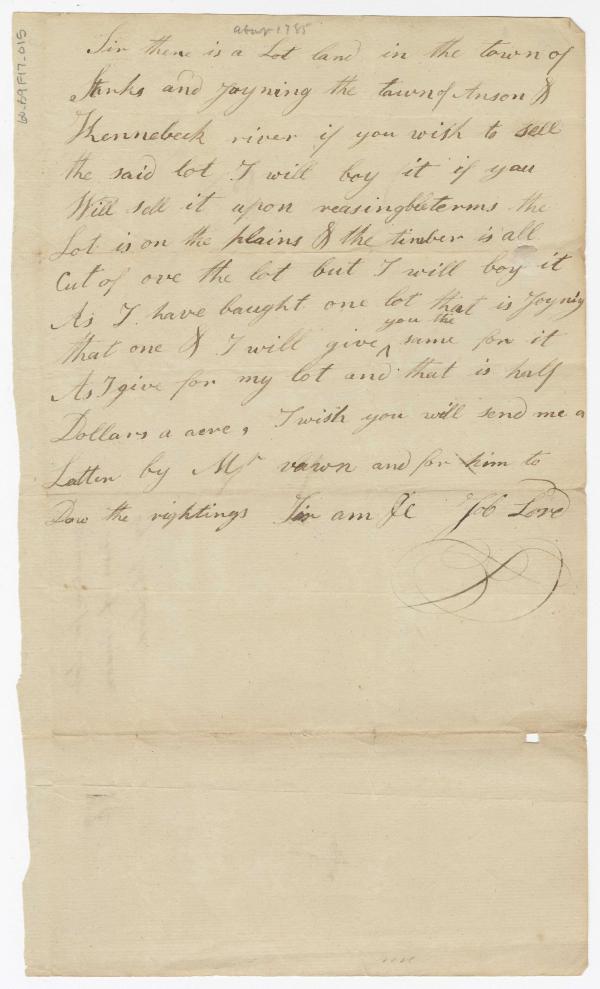 about 1785
60-69F17-015
Sir there is a Lot land in the town of
Starks and Joyning the town of Anson &
Khennebeck river if you wish to sell
the said lot I will boy it if you
Will sell it upon reasingble terms the
Lot is on the plains & the timber is all
Cut of ove the lot but I will boy it
As I have baught one lot that is Joynig
you the
that one & I will give ^ same for it
As I give for my lot and that is half
Dollars a acre, I wish you will send me a
Latter by Mr vawn and for him to
Dow the rightings Sir am &c Job Lord